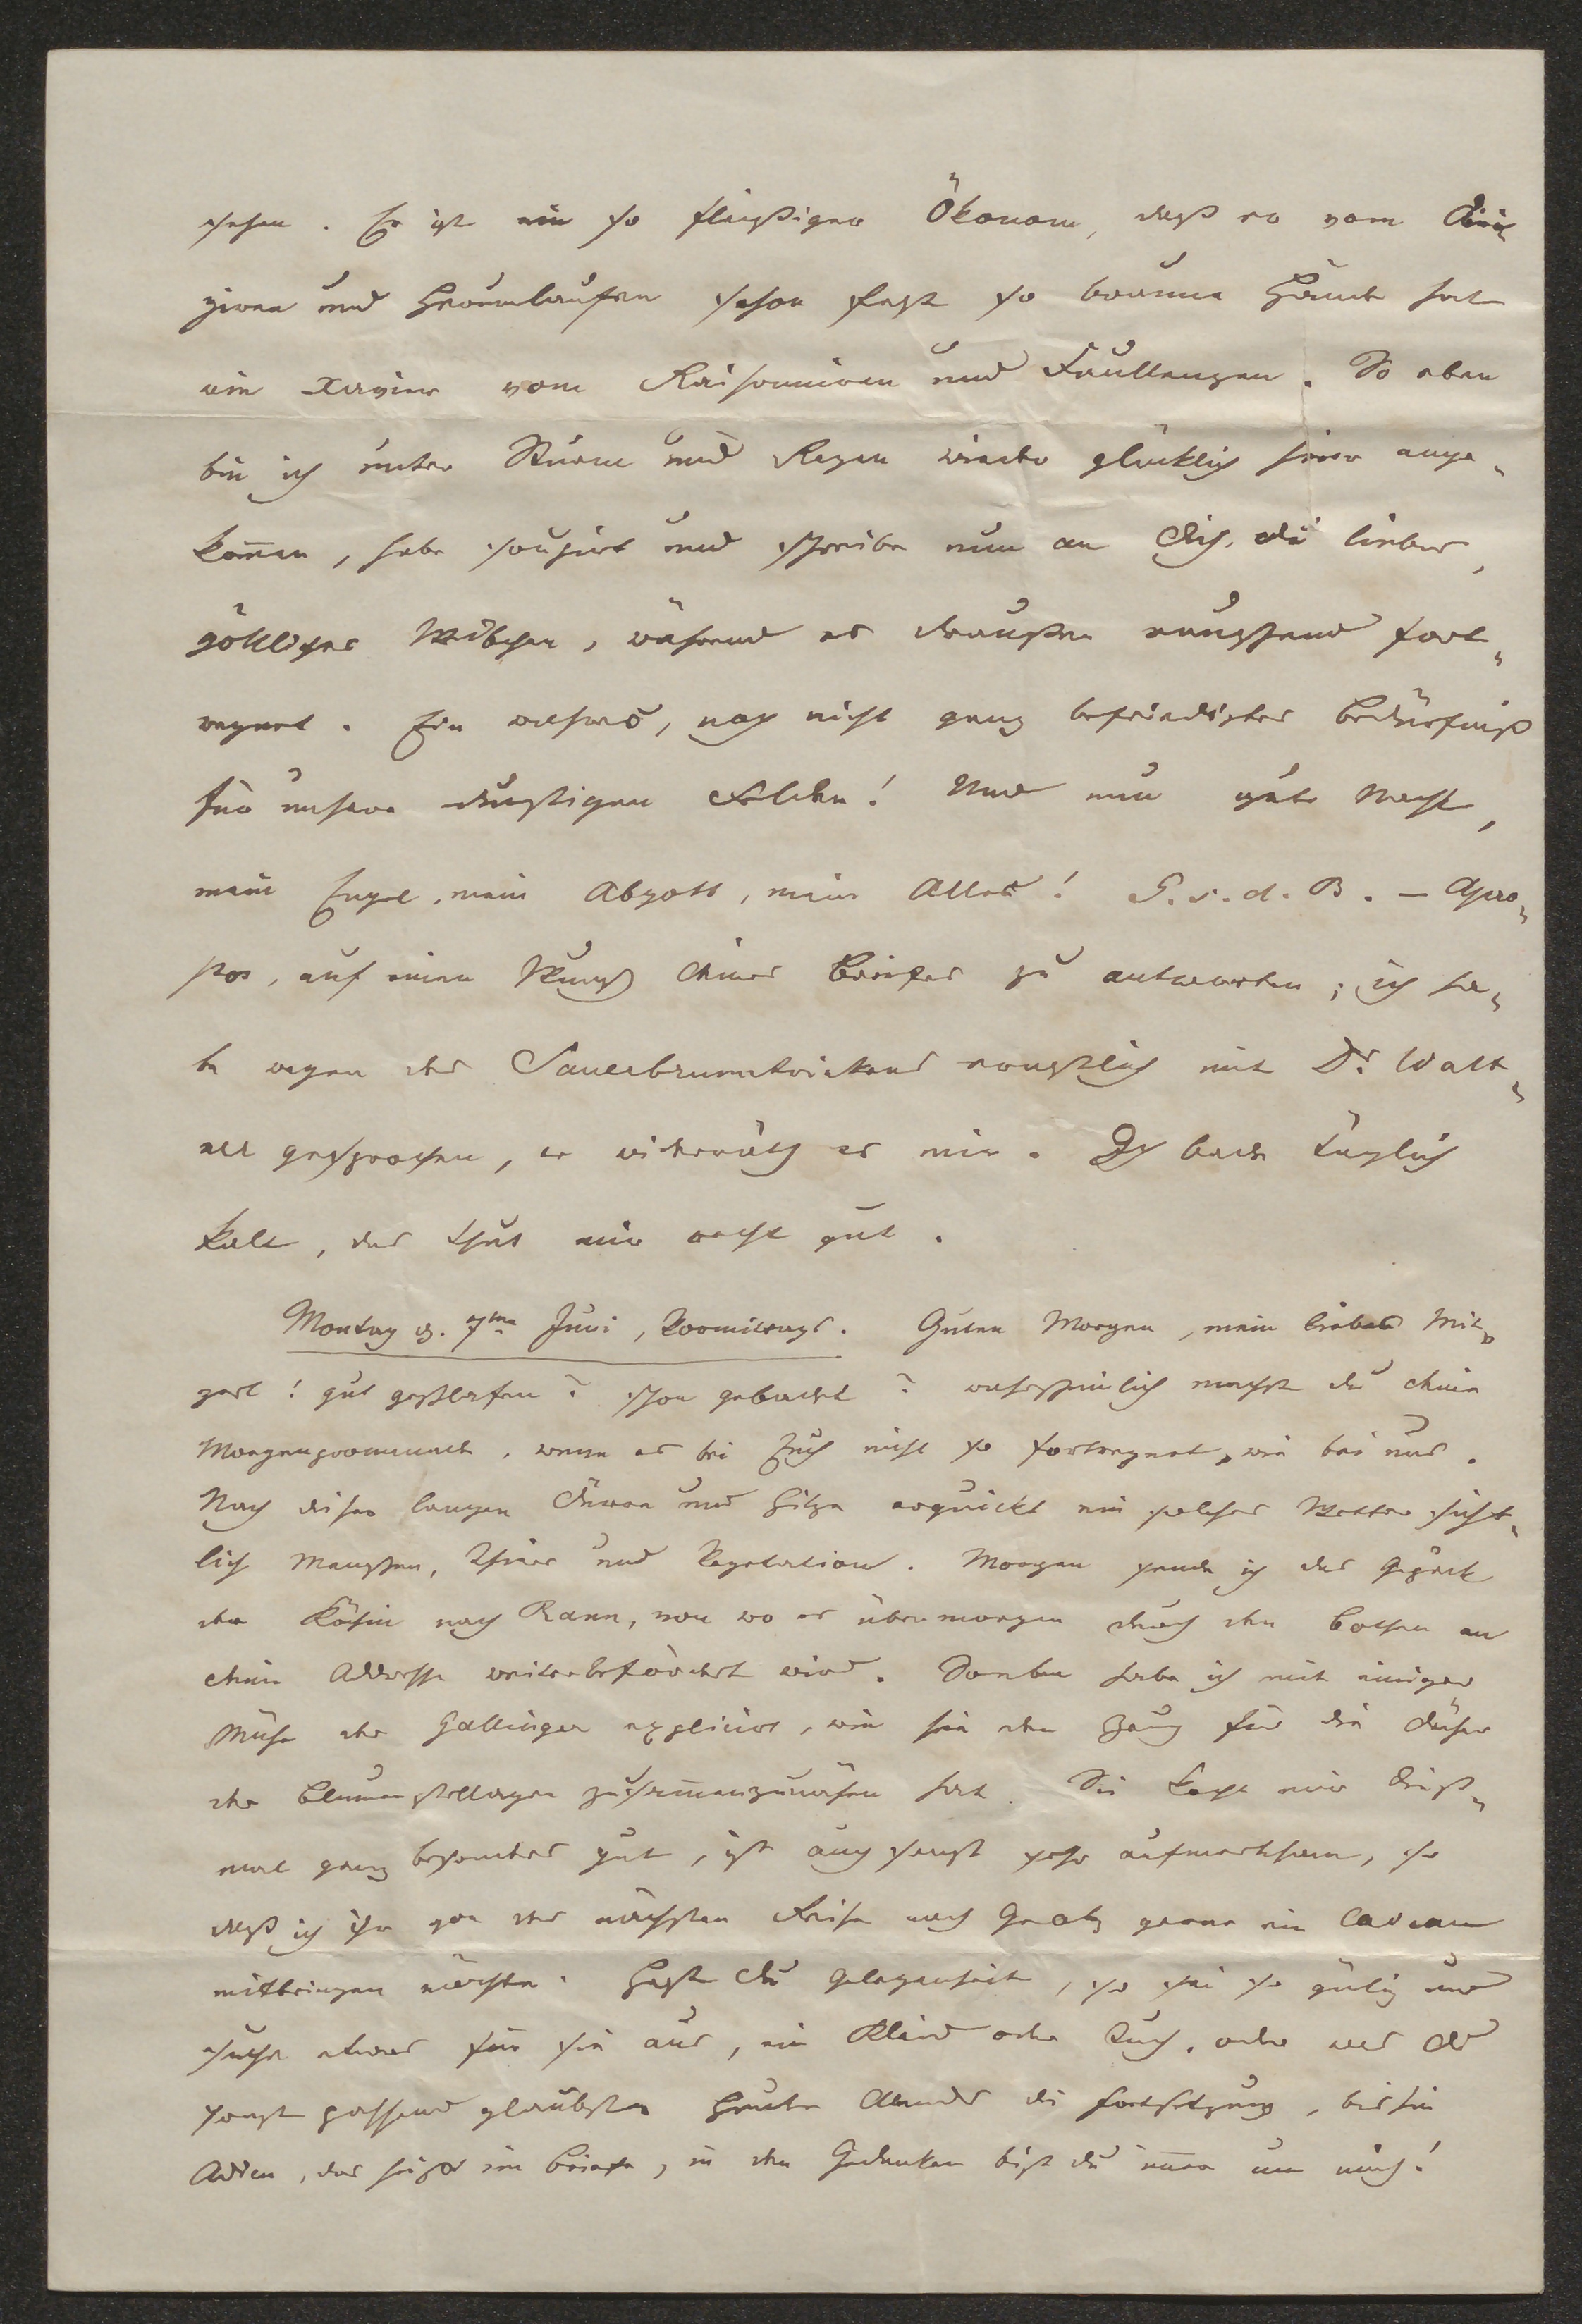 sehen. Er ist ein so fleißiger Ökonom, daß er vom Diri-
giren und Herumlaufen schon fast so braune Hände hat
wie Xavier vom Raisonniren und Faullenzen. So eben
bin ich unter Sturm und Regen wieder glücklich hier ange-
kom̅en, habe soupirt und schreibe nun an Dich, du liebes,
göttliches Weibchen, während es draußen rauschend fort-
regnet. Ein wahres, noch nicht ganz befriedigtes Bedürfniß
für unsere durstigen Felder! Und nun gute Nacht,
mein Engel, mein Abgott, mein Alles! G. s. d. B. – Apro-
pos, auf einen Wunsch deines Briefes zu antworten; ich ha-
be wegen des Sauerbrunntrinkens ernstlich mit Dr. Walt-
ner gesprochen, er widerräth es mir. Ich bade täglich
kalt, das thut mir recht gut.
Montag d. 7ten Juni, Vormittags. Guten Morgen, mein liebes
gut geschlafen? schon gebadet? wahrscheinlich machst du deine
Morgenpromenade, wenn es bei Euch nicht so fortregnet, wie bei uns.
Nach dieser langen Dürre und Hitze erquickt ein solches Wetter sicht-
lich Menschen, Thiere und Vegetation. Morgen sende ich das Gepäck
der Köchin nach Rann, von wo es übermorgen durch den Bothen an
deine Addresse weiterbefördert wird. Soeben habe ich mit einiger
Mühe der Gallinger explicirt, wie sie den Zeug für die Dächer
der Blumenstellagen zusam̅enzunähen hat. Sie kocht mir dieß-
mal ganz besonders gut, ist auch sonst sehr aufmerksam, so
daß ich ihr von der nächsten Reise nach Gratz gerne ein Cadeau
mitbringen möchte. Hast du Gelegenheit, so sei so gütig und
suche etwas für sie aus, ein Kleid oder Tuch, oder was du
sonst passend glaubst. Heute Abends die Fortsetzung, bis hin
Addieu, das heißt im Briefe, in den Gedanken bist du im̅er um mich!